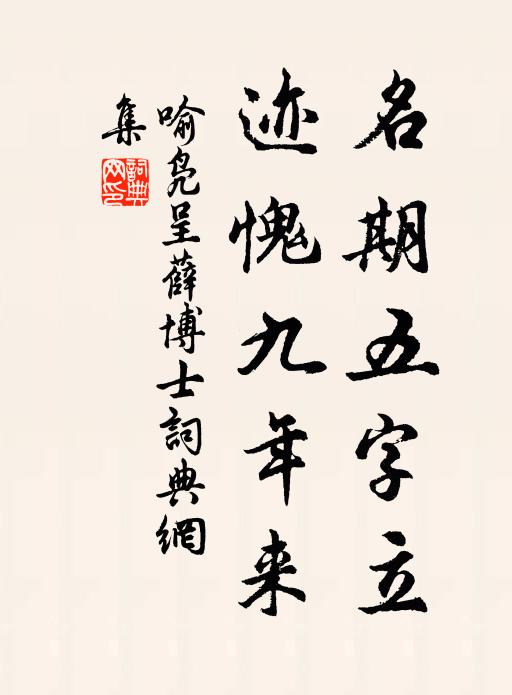 名期五字立
迹愧九年来
喻凫呈薛博士詞典網
集
詞典網印